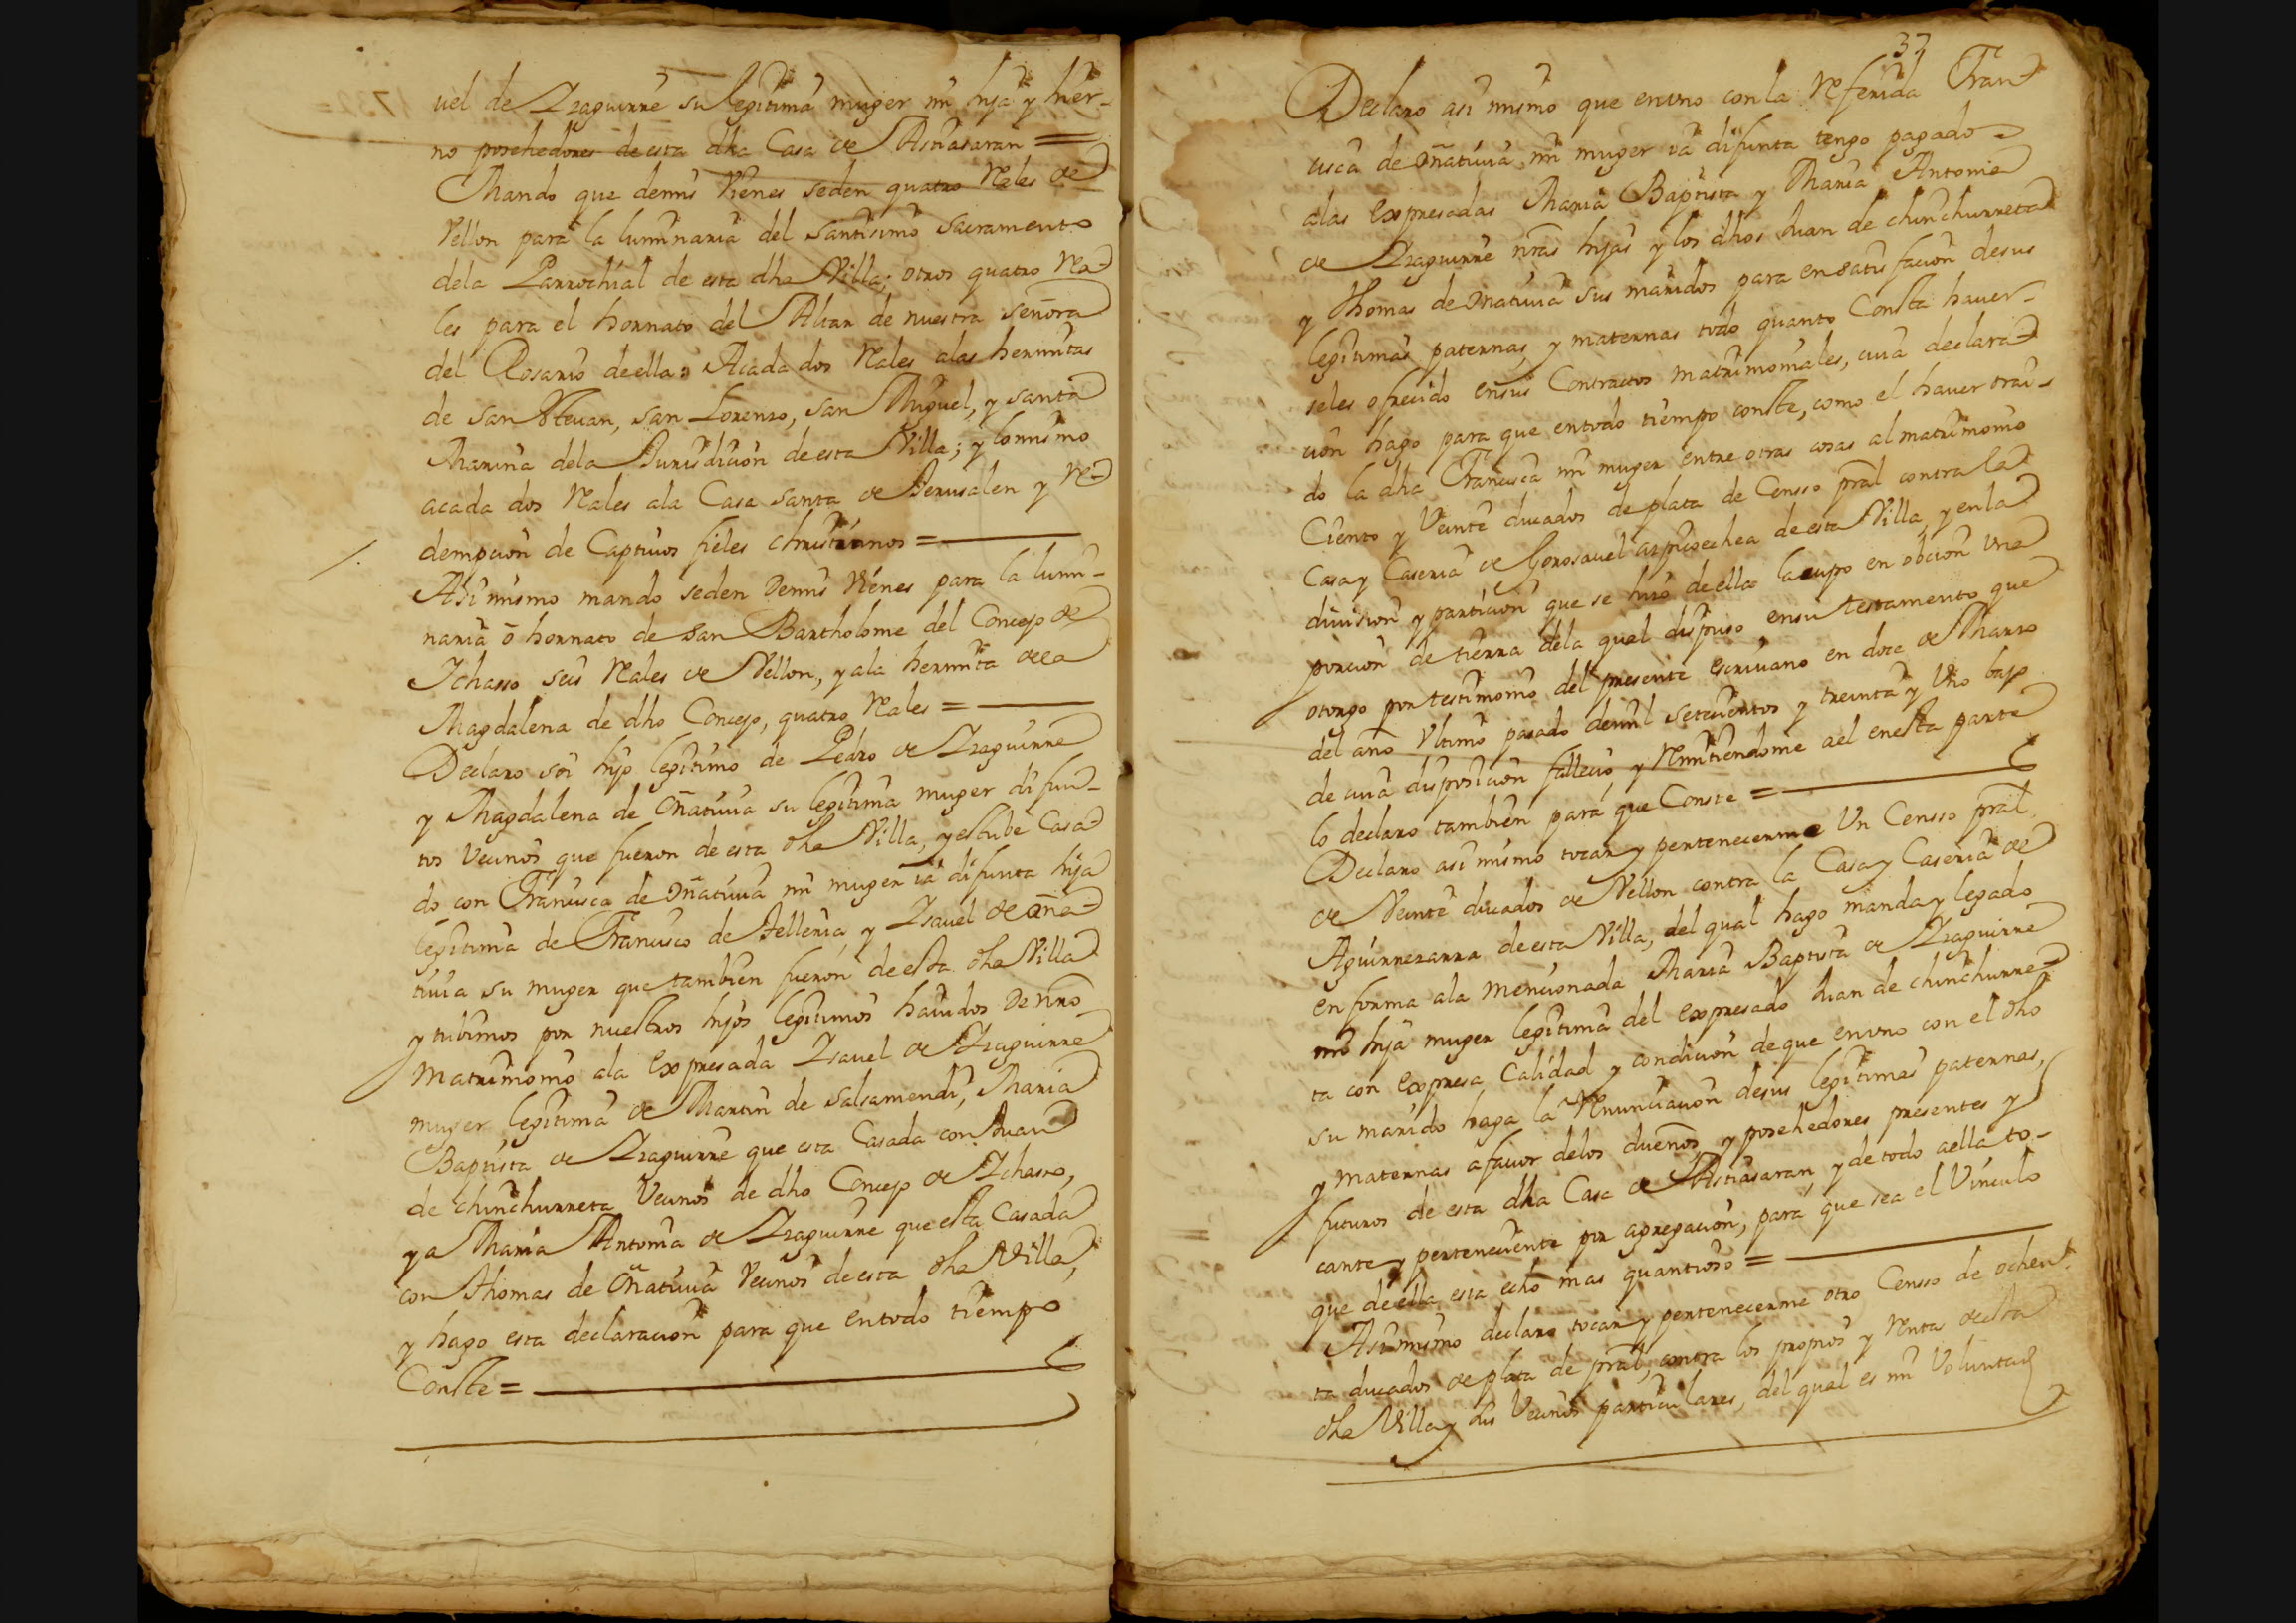 uel de Yzaguirre su legitima muger mi hija y hier-
no posehedores de esta dha Casa de Astiasaran =
Mando que demis Vienes seden quatro Reales de
Vellon para la luminaria del santisimo sacramento
dela Parrochial de esta dha Villa; otros quatro Rea-
les para el hornato del Altar de nuestra señora
del Rosario deella; Acada dos Reales alas hermitas
de san Esteuan, san Lorenzo, san Miguel, y santa
Marina dela Jurisdicion de esta Villa; y lomismo
acada dos Reales ala Casa santa de Jerusalen y Re-
dempcion de Captiuos fieles christianos =
Asi mismo mando seden Demis Vienes para la lumi-
naria ó hornato de san Bartholome del Concejo de
Ichasso seis Reales de Vellon, y ala hermita de la
Magdalena de dho Concejo, quatro Reales =
Declaro soi hijo legitimo de Pedro de Yzaguirre
y Magdalena de Oñatiuia su legitima muger difun-
tos Vecinos que fueron de esta dha Villa, y estube Casa-
do con Francisca de Oñatiuia mi muger ia difunta hija
legitima de Francisco de Telleria, y Ysauel de Oña-
tiuia su muger que tambien fueron de esta dha Villa
y tubimos por nuestros hijos legitimos hauidos De nro
Matrimonio ala Expresada Ysauel de Yzaguirre
muger legitima de Martin de Salsamendi, Maria
Baptista de Yzaguirre que esta Casada con Juan
de chinchurreta Vecinos de dho Concejo de Ichasso,
y a Maria Antonia de Yzaguirre que esta Casada
con Thomas de Oñatiuia Vecinos de esta dha Villa,
y hago esta declaracion para que entodo tiempo
Conste =
37
Declaro asi mismo que enuno conla Referida Fran-
cisca de Oñatiuia mi muger ia difunta tengo pagado
alas Expresadas Maria Baptista y Maria Antonia
de Yzaguirre nras hijas y los dhos Juan de chinchurreta
y Thomas de Onatiuia sus maridos para en satisfacion desus
legitimas paternas, y maternas todo quanto Consta hauer-
seles ofrecido ensus Contractos matrimoniales, cuia declara-
cion hago para que entodo tiempo conste, como el hauer trai-
do la dha Francisca mi muger entre otras cosas al matrimonio
Ciento y Veinte ducados de plata de Censso pral contra la
Casa y Caseria de Gorosauel azpicoechea de esta Villa, y en la
diuision y particion que se hizo de ella la cupo en obcion Una
porcion de tierra dela qual dispuso ensu testamento que
otorgo por testimonio del presente escriuano en doze de Marzo
del año Vltimo pasado demil setecientos y treinta y Vno bajo
de cuia disposicion fallecio, y Remitiendome ael enesta parte
lo declaro tambien para que Conste =
Declaro asi mismo tocar y pertenecerme Un Censso pral
de Veinte ducados de Vellon contra la Casa y Caseria de
Aguirrezarra de esta Villa, del qual hago manda y legado
en forma ala Mencionada Maria Baptista de Yzaguirre
mi hija muger legitima del Expresado Juan de chinchurre-
ta con Expresa Calidad y condicion de que enuno con el dho
su marido haga la Renunciacion desus legitimas paternas,
y maternas afauor delos dueños y posehedores presentes y
futuros de esta dha Casa de Astiasaran, y de todo aella to-
cante y perteneciente por agregacion, para que sea el Vinculo
que deella esta echo mas quantioso =
Asi mismo declaro tocar y pertenecerme otro Censso de ochen-
ta ducados de plata de pral, contra los propios y Renta de esta
dha Villa y sus Vecinos particulares, del qual es mi Voluntad